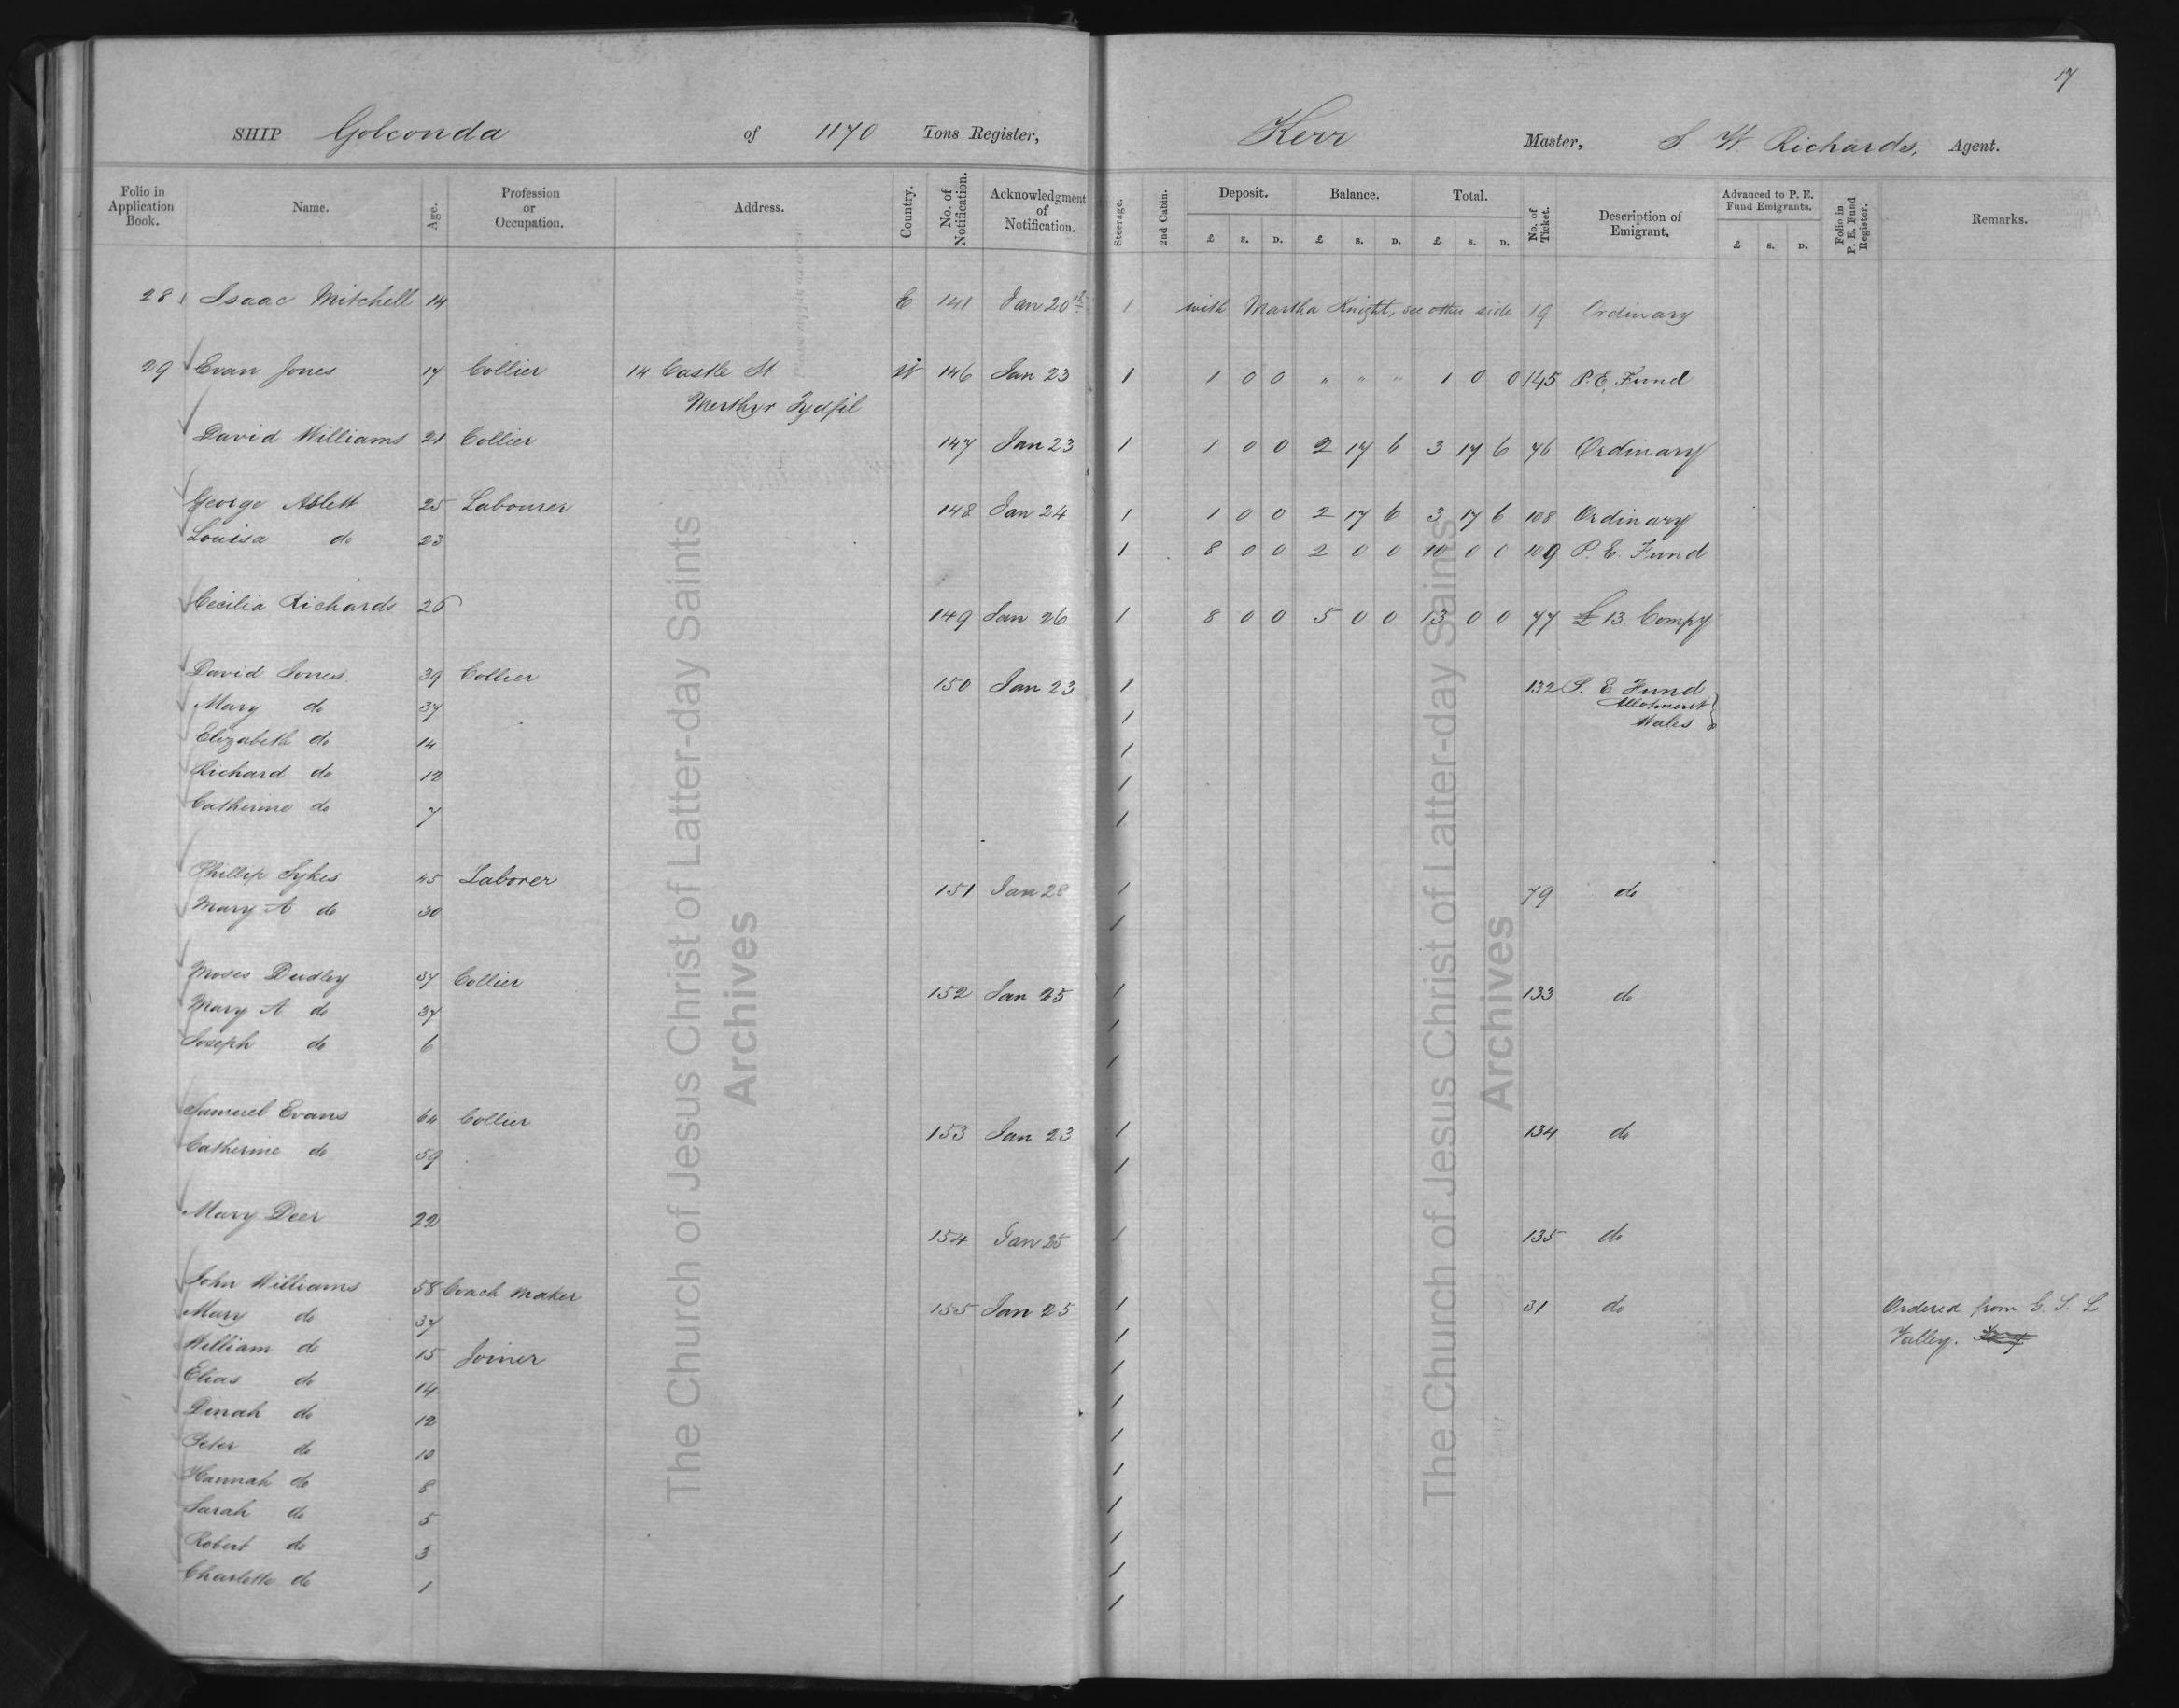 17
SHIP Golconda of 1170 Tons Register, Kerr Master, S W Richards, Agent.
Folio in Application Book. Name. Age. Profession or Occupation. Address. Country. No. of Notification. Acknowledgment of Notification. Steerage. 2nd Cabin. Deposit. £ s. D. Balance. £ s. D. Total. £ s. D. No. of Ticket. Description of Emigrant. Advanced to P. E. Fund Emigrants. £ s. D. Folio in P. E. Fund Register. Remarks.
28 Isaac Mitchell 14 E 141 Jan 20th 1 with Martha Knight, see other side 19 Ordinary
29 Evan Jones 17 Collier 14 Castle St W 146 Jan 23 1 1 0 0 " " " 1 0 0 145 P. E. Fund
Merthyr Tydfil
David Williams 21 Collier 147 Jan 23 1 1 0 0 2 17 6 3 17 6 76 Ordinary
George Aslett 25 Labourer 148 Jan 24 1 1 0 0 2 17 6 3 17 6 108 Ordinary
Louisa do 23 1 8 0 0 2 0 0 10 0 0 109 P. E. Fund
Cecilia Richards 26 149 Jan 26 1 8 0 0 5 0 0 13 0 0 77 £13 Compy
David Jones 39 Collier 150 Jan 23 1 132 P. E. Fund
Allotment
Mary do 37 1 Wales
Elizabeth do 14 1
Richard do 12 1
Catherine do 7 1
Phillip Sykes 45 Laborer 151 Jan 28 1 79 do
Mary A do 30 1
Moses Dudley 37 Collier 152 Jan 25 1 133 do
Mary A do 37 1
Joseph do 6 1
Samuel Evans 64 Collier 153 Jan 23 1 134 do
Catherine do 59 1
Mary Deer 22 154 Jan 25 1 135 do
John Williams 58 Coach Maker 155 Jan 25 1 31 do Ordered from G. S. L
Mary do 37 1 Valley.
William do 15 Joiner 1
Elias do 14 1
Dinah do 12 1
Peter do 10 1
Hannah do 8 1
Sarah do 5 1
Robert do 3 1
Charlotte do 1 1
The Church of Jesus Christ of Latter-day Saints
Archives
The Church of Jesus Christ of Latter-day Saints
Archives